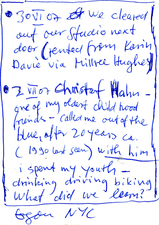 30 VI 07 We cleared
out our studio next
door (rented from Karin
Davie via Millree Hughes)
3. VII 07 Christof Hahn –
one of my oldest childhood
friends – called me out of the
blue, after 20 years ca.
(1990 last seen) with him
i spent my youth –
drinking driving biking
What did we learn?
NYC